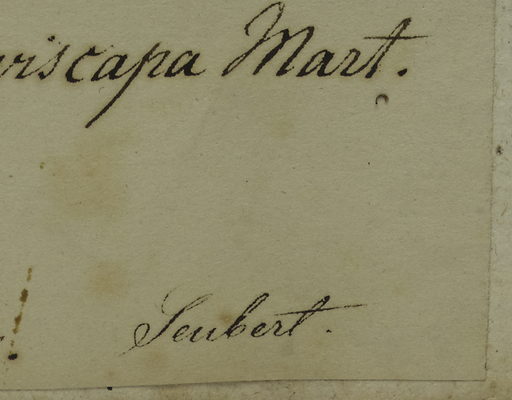 viscapa Mart.
Seubert.